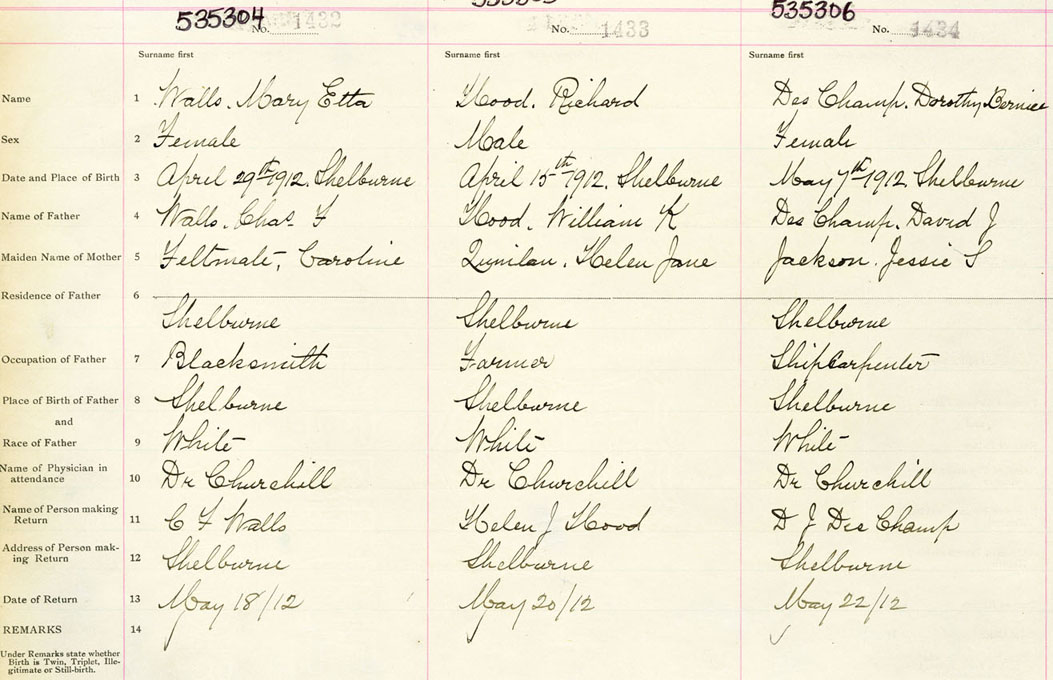 535304 535306
No. 1432 No. 1433 No. 1434
Surname first Surname first Surname first
Name 1 Walls. Mary Etta Hood. Richard Des Champ. Dorothy Bernice
Sex 2 Female Male Female
Date and Place of Birth 3 April 29th 1912. Shelburne April 15th 1912. Shelburne May 7th 1912 Shelburne
Name of Father 4 Walls. Chas F Hood. William K Des Champ. David J
Maiden Name of Mother 5 Feltmate, Caroline Quinlan. Helen Jane Jackson. Jessie S
Residence of Father 6
Shelburne Shelburne Shelburne
Occupation of Father 7 Blacksmith Farmer Ship Carpenter
Place of Birth of Father 8 Shelburne Shelburne Shelburne
and
Race of Father 9 White White White
Name of Physician in
attendance 10 Dr Churchill Dr Churchill Dr Churchill
Name of Person making
Return 11 C F Walls Helen J Hood D J Des Champ
Address of Person mak-
ing Return 12 Shelburne Shelburne Shelburne
Date of Return 13 May 18/12 May 20/12 May 22/12
REMARKS 14
Under Remarks state whether
Birth is Twin, Triplet, Ille-
gitimate or Still-birth.